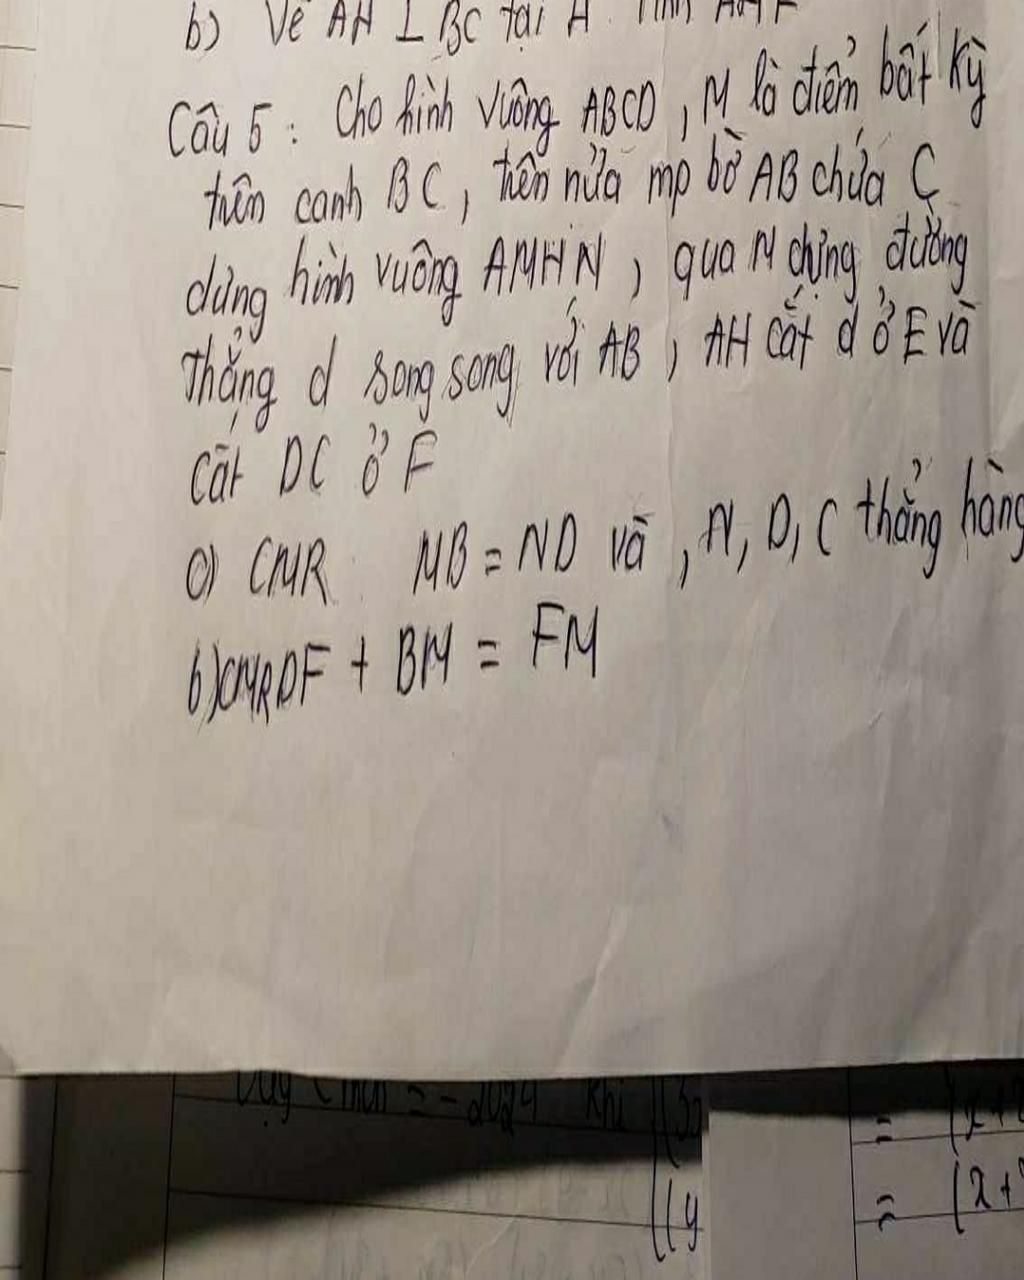 b) Vẽ AH ⊥ BC tại H. Tính
Câu 5 : Cho hình vuông ABCD, M là điểm bất kỳ
trên cạnh BC, trên nửa mp bờ AB chứa C
dựng hình vuông AMHN, qua M dựng đường
thẳng d song song với AB, AH cắt d ở E và
cắt DC ở F
a) CMR MB = ND và, N, D, C thẳng hàng
b) CMR DF + BM = FM
= -2024 khi
=
= (x+
((y